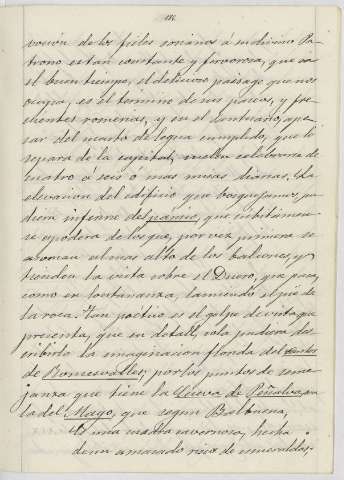 voción de los fieles sorianos á su divino Pa-
trono es tan constante y fervorosa, que en
el buen tiempo, el delicioso paisage que nos
ocupa, es el término de sus paseos, y fre-
cuentes romerias, y en el santuario, ape-
sar del cuarto de legua cumplido, que lo
separa de la capital, suelen celebrarse de
cuatro á seis ó mas misas diarias. La
elevacion del edificio que bosquejamos, pu-
diera inferirse del panico, que
se apodera de los que, por vez primera se
asoman al mas alto de los balcones, y
tienden la vista sobre el Duero, que pasa,
como en lontananza, lamiendo el pié de
la roca. Tan poético es el golpe de vista que
presenta, que en detall, solo pudiera des-
cribirlo la imaginacion florida del cantor
de Roncesvalles; por los puntos de seme-
janza que tiene la Cueva de Peñalva, con
la del Mago, que segun Balbuena,
Es una vasta cavernosa, hecha
de un amasado risco de esmeraldas.